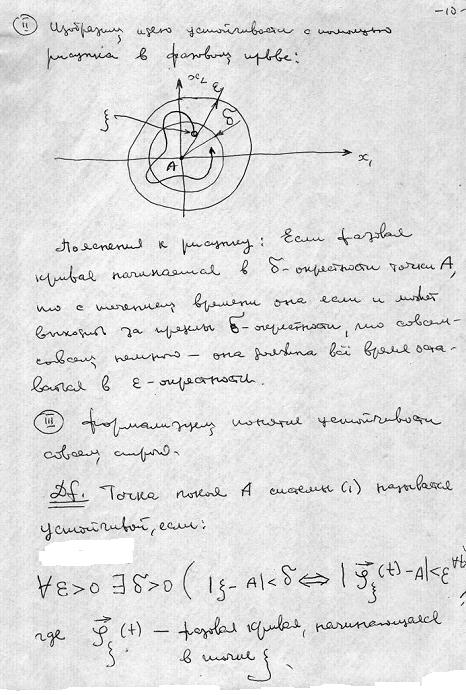 -10-
II Изобразим идею устойчивости с помощью
рисунка в фазовом пр-ве:
x₂
ε
ξ
δ
A
x₁
Пояснения к рисунку: Если фазовая
кривая начинается в δ-окрестности точки A,
то с течением времени она если и может
выходить за пределы δ-окрестности, то совсем-
совсем немного – она должна всё время оста-
ваться в ε-окрестности.
III Формализуем понятие устойчивости
совсем строго.
Df. Точка покоя A системы (1) называется
устойчивой, если:
∀ε>0 ∃δ>0 ( |ξ-A|<δ ⟺ |φ⃗_ξ(t)-A|<ε ∀t
где φ⃗_ξ(t) – фазовая кривая, начинающаяся
в точке ξ.